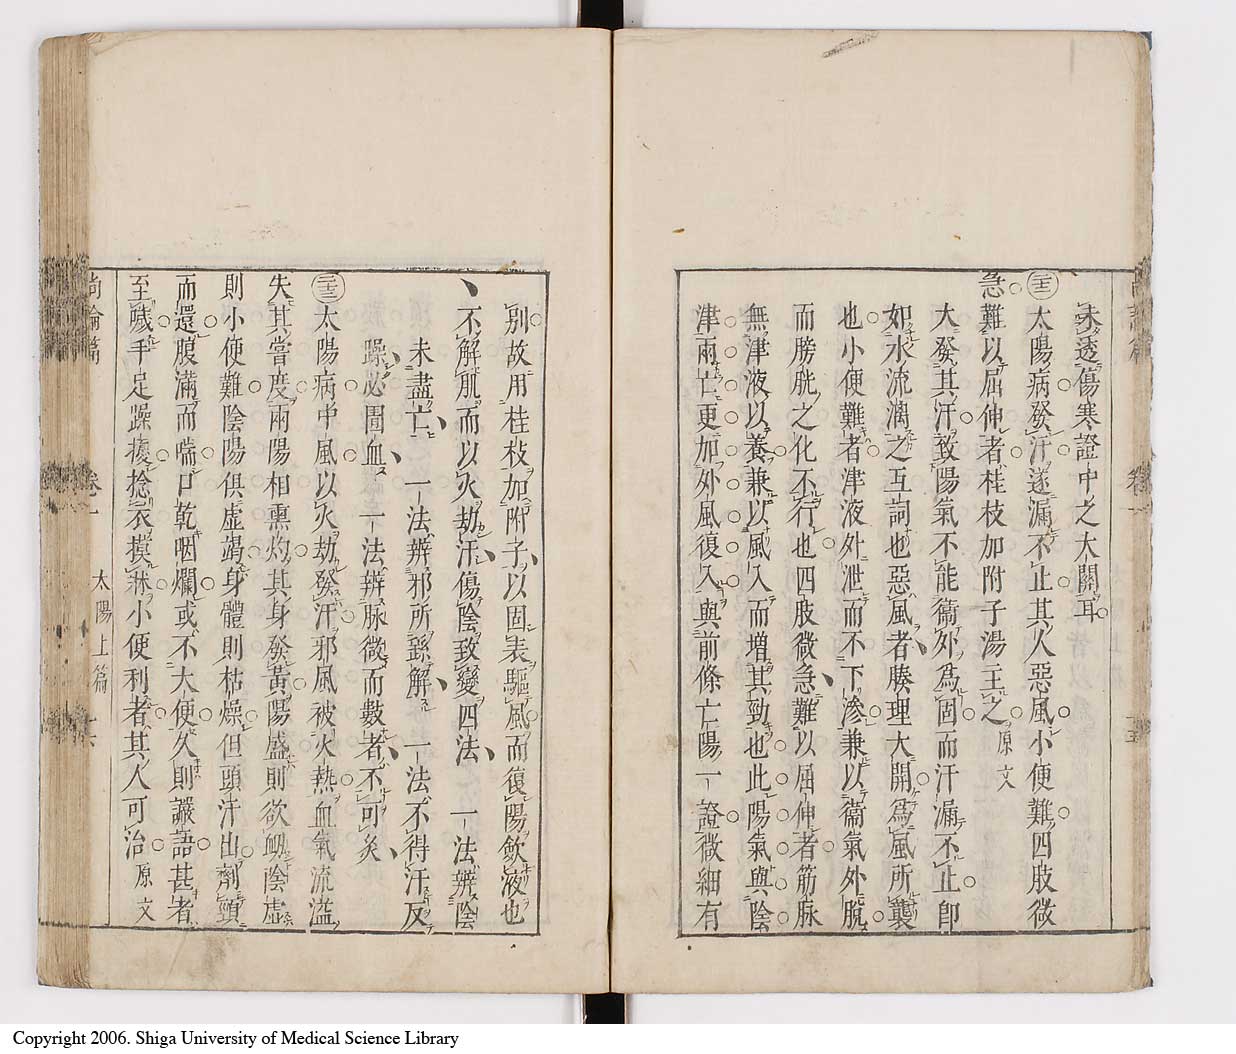 未透傷寒證中之大關耳
太陽病發汗遂漏不止其人惡風小便難四肢微
急難以屈伸者桂枝加附子湯主之原文
大發其汗致陽氣不能衞外爲固而汗漏不止即
如水流漓之互詞也惡風者腠理大開爲風所襲
也小便難者津液外泄而不下滲兼以衞氣外脫
而膀胱之化不行也四肢微急難以屈伸者筋脉
無津液以養兼以風入而增其勁也此陽氣與陰
津兩亡更加外風復入與前條亡陽一證微細有
別故用桂枝加附子以固表驅風而復陽歛液也
不解肌而以火劫汗傷陰致變四法 一法辨陰
未盡亡 一法辨邪所繇解 一法不得汗反
躁必圊血 一法辨脉微而數者不可灸
三二 太陽病中風以火劫發汗邪風被火熱血氣流溢
失其常度兩陽相熏灼其身發黃陽盛則欲衂陰虛
則小便難陰陽俱虛竭身體則枯燥但頭汗出劑頸
而還腹滿而喘口乾咽爛或不大便久則讝語甚者
至噦手足躁擾捻衣摸牀小便利者其人可治原文
尚論篇 卷一 太陽上篇 十六
Copyright 2006. Shiga University of Medical Science Library